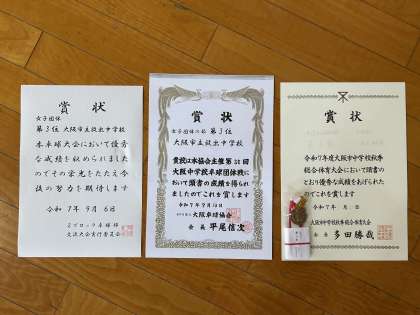 賞状
女子団体
第3位 大阪市立放出中学校
本卓球大会において優秀
な成績を収められました
のでその栄光をたたえ今
後の努力を期待します
令和 7年 9月 6日
交流大会実行委員会
賞状
女子団体の部 第3位
大阪市立放出中学校
貴校は本協会主催第
大阪中学校卓球団体戦に
おいて頭書の成績を得られ
ましたのでこれを賞します
令和7年9月
大阪卓球協会
会長 平尾信次
賞状
令和7年度大阪市中学校秋季
総合体育大会において頭書の
とおり優秀な成績をあげられた
のでこれを賞します
令和7年 月 日
大阪市中学校秋季総合体育大会
会長 多田勝哉